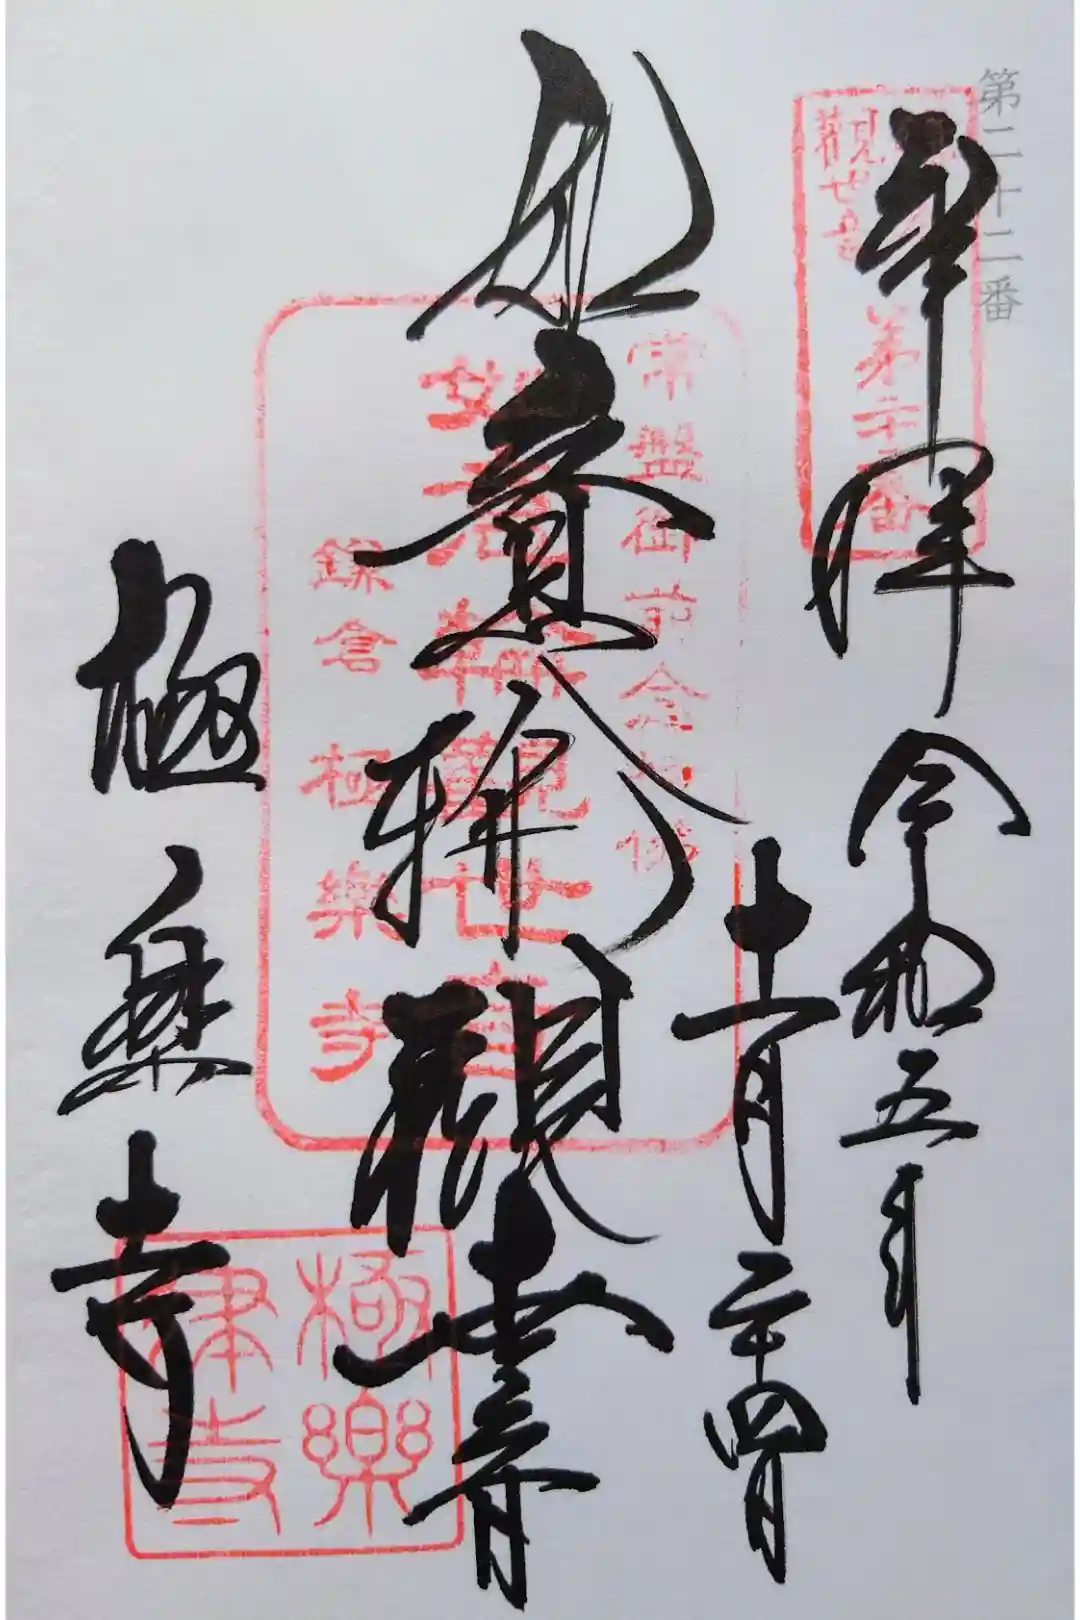 第二十二番
奉拝 令和五年
十一月二十四日
如意輪観世音
極楽寺
觀世音
第二十二番
常盤御前念持佛
如意輪觀世音
鎌倉 極樂寺
極樂
律寺